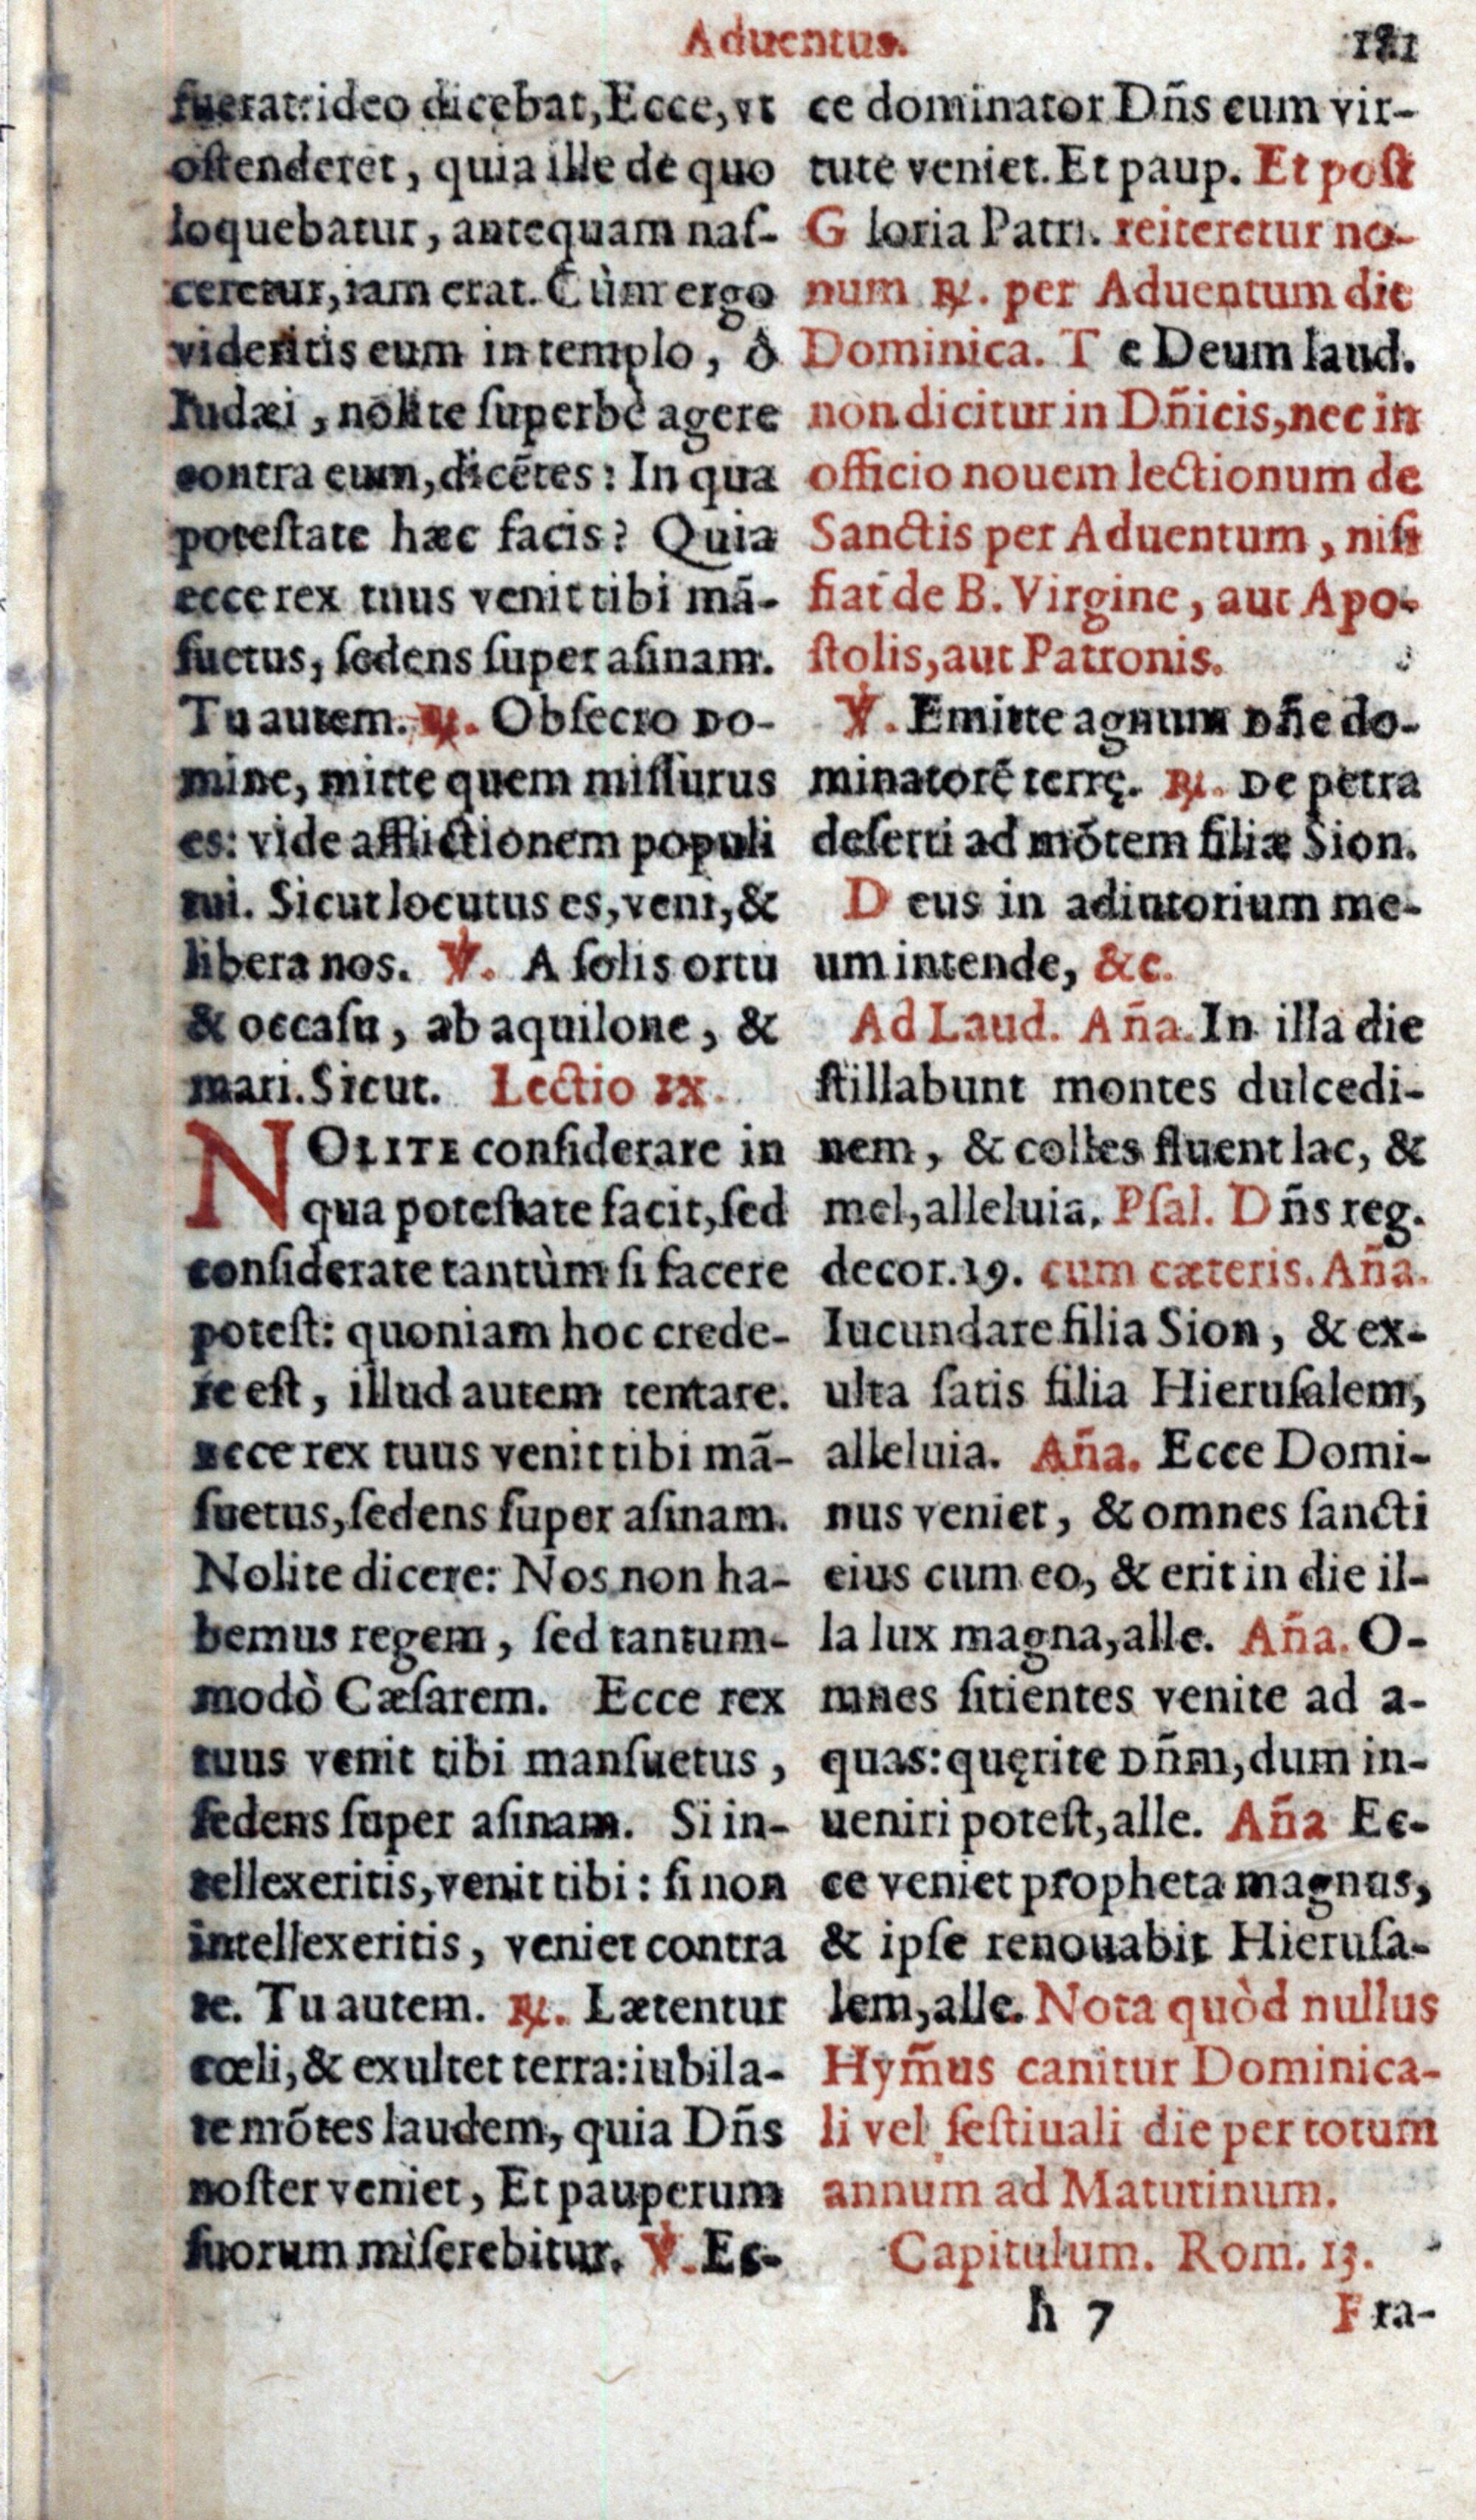 Aduentus. 121
fuerat: ideo dicebat, Ecce, vt
oſtenderet, quia ille de quo
loquebatur, antequam naſ-
ceretur, iam erat. Cùm ergo
videritis eum in templo, ô
Iudæi, nolite ſuperbè agere
contra eum, dicẽtes: In qua
poteſtate hæc facis? Quia
ecce rex tuus venit tibi mã-
ſuetus, ſedens ſuper aſinam.
Tu autem. ℟. Obſecro Do-
mine, mitte quem miſſurus
es: vide afflictionem populi
tui. Sicut locutus es, veni, &
libera nos. ℣. A ſolis ortu
& occaſu, ab aquilone, &
mari. Sicut. Lectio IX.
NOLITE conſiderare in
qua poteſtate facit, ſed
conſiderate tantùm ſi facere
poteſt: quoniam hoc crede-
re eſt, illud autem tentare.
Ecce rex tuus venit tibi mã-
ſuetus, ſedens ſuper aſinam.
Nolite dicere: Nos non ha-
bemus regem, ſed tantum-
modò Cæſarem. Ecce rex
tuus venit tibi manſuetus,
ſedens ſuper aſinam. Si in-
tellexeritis, venit tibi: ſi non
intellexeritis, veniet contra
te. Tu autem. ℟. Lætentur
cœli, & exultet terra: iubila-
te mõtes laudem, quia Dñs
noſter veniet, Et pauperum
ſuorum miſerebitur. ℣. Ec-
ce dominator Dñs cum vir-
tute veniet. Et paup. Et poſt
Gloria Patri. reiteretur no-
num ℟. per Aduentum die
Dominica. Te Deum laud.
non dicitur in Dñicis, nec in
officio nouem lectionum de
Sanctis per Aduentum, niſi
fiat de B. Virgine, aut Apo-
ſtolis, aut Patronis.
℣. Emitte agnum Dñe do-
minatorẽ terrę. ℟. De petra
deſerti ad mõtem filiæ Sion.
Deus in adiutorium me-
um intende, &c.
Ad Laud. Aña. In illa die
ſtillabunt montes dulcedi-
nem, & colles fluent lac, &
mel, alleluia. Pſal. Dñs reg.
decor. 19. cum cæteris. Aña.
Iucundare filia Sion, & ex-
ulta ſatis filia Hieruſalem,
alleluia. Aña. Ecce Domi-
nus veniet, & omnes ſancti
eius cum eo, & erit in die il-
la lux magna, alle. Aña. O-
mnes ſitientes venite ad a-
quas: quęrite Dñm, dum in-
ueniri poteſt, alle. Aña Ec-
ce veniet propheta magnus,
& ipſe renouabit Hieruſa-
lem, alle. Nota quòd nullus
Hym̃us canitur Dominica-
li vel feſtiuali die per totum
annum ad Matutinum.
Capitulum. Rom. 13.
h 7 Fra-